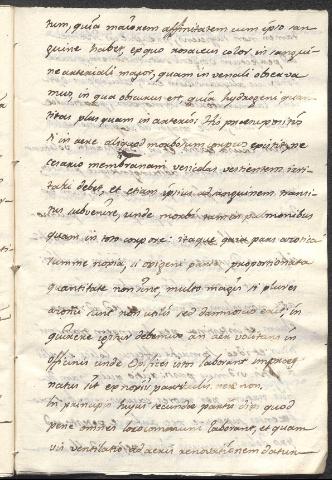 tum, quia maiorem affinitatem cum ipso san
guine habet, ex quo roraceus color in sangui
ne arteriali major, quam in venali observa
mus in quo obscurus est, quia hydrogeni quan
titas plus quam in arteriis. His praesuppositis
si in aere aliquod morborum corpus existit, ne
cesario membranam vesiculas vestientem irri
tare debet, et etiam ipsius ad sanguinem transi
tus subvenire, unde morbi tam in pulmonibus
quam in toto corpore: itaque pars azotica
summe noxia, si oxigeni parte proportionata
quantitate non sint, multo magis si plures
azotici sunt non utilis sed damnosus erit; in
quirere igitur debemus an aer vacians in
officinis unde Opifices isti laborant impreg
natus sit ex noxiis particulis, nec non,
In principio hujus secundae partis dixi quod
pene omnes laborant, et quam
vis ventilatio ad aeris renovationem datur